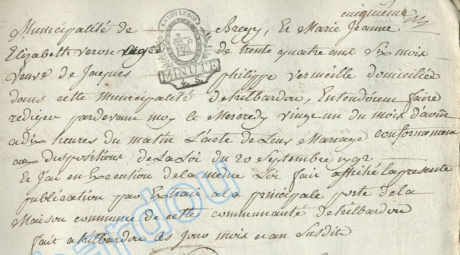 cinquieme
Municipalité de Brcy, Et Marie Jeanne
Elizabeth veron agée de trente quatre ans Six mois
MINUTE
veuve de Jacques philippe vermeille domiciliée
dans cette Municipalité de trilbardou, Entendoient faire
rediger pardevant moy le Mercredy vingt un du mois d'aoust
a dix heures du matin L'acte de Leur Mariage conformement
aux dispositions de La Loi du 20 septembre 1792
Et J'ai en Execution de la meme Loi fait affiché la presente
publication par Extrait a la principale porte de la
Maison commune de cette communauté de trilbardou
fait a trilbardou les jour mois et an Susdits